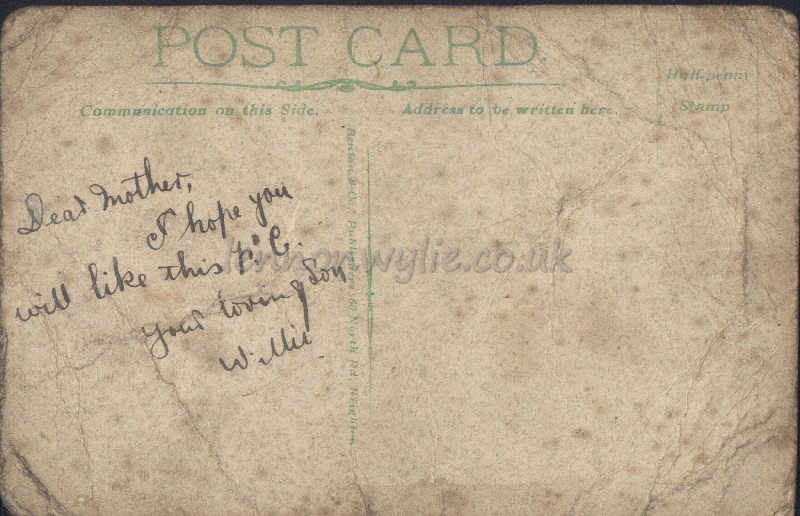 POST CARD
Communication on this Side.
Address to be written here.
Half-penny
Stamp
Dear Mother,
I hope you
will like this P.C.
your loving Son
Willie
& Co., Publishers, 60 North Rd. Brighton.
lennonwylie.co.uk